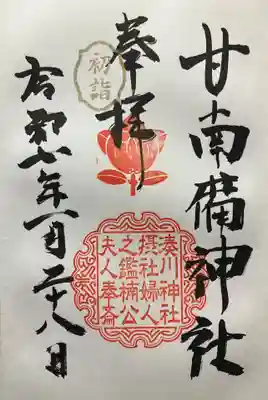 甘南備神社
奉拝
初詣
湊川神社
摂社婦人
之鑑楠公
夫人奉斎
令和六年一月二十八日